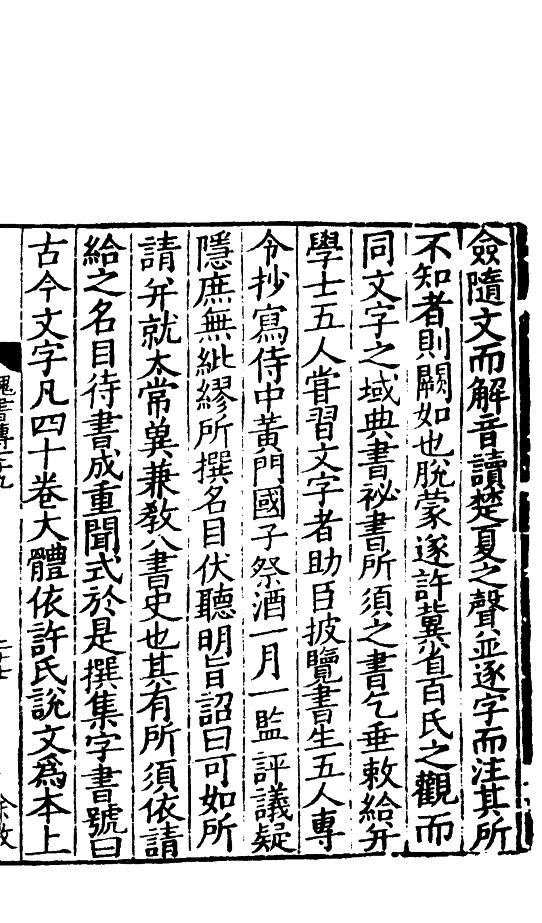 僉隨文而解音讀楚夏之聲並逐字而注其所
不知者則闕如也脫蒙遂許冀省百氏之觀而
同文字之域典書祕書所須之書乞垂敕給并
學士五人甞習文字者助臣披覽書生五人專
令抄寫侍中黃門國子祭酒一月一監評議疑
隱庶無紕繆所撰名目伏聽明旨詔曰可如所
請并就太常兾兼教八書史也其有所須依請
給之名目待書成重聞式於是撰集字書號曰
古今文字凡四十卷大體依許氏說文爲本上
魏書傳七十九